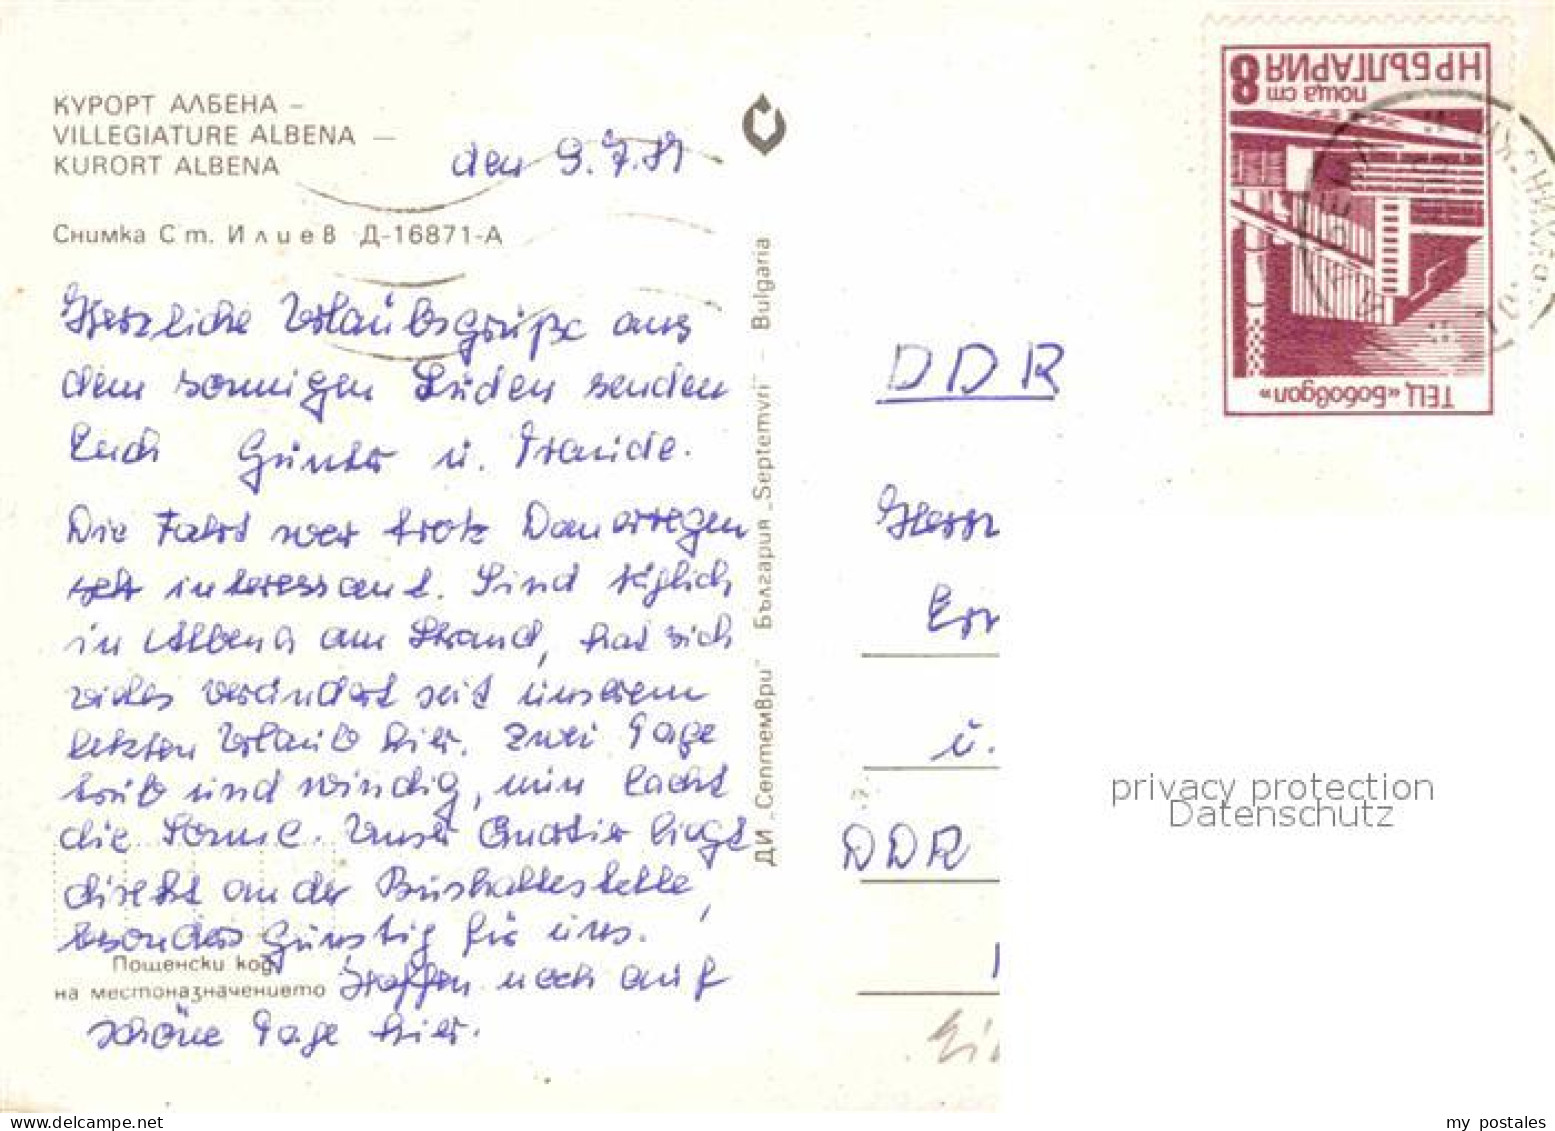 КУРОРТ АЛБЕНА –
VILLEGIATURE ALBENA –
KURORT ALBENA
den 9.7.81
Снимка Ст. Илиев Д-16871-А
Herzliche Urlaubsgrüße aus
dem sonnigen Süden senden
Euch Günter u. Traude.
Die Fahrt war trotz Dauerregen
interessant. Sind täglich
in Albena am Strand, hat sich
vieles verändert seit unserem
letzten Urlaub hier. Zwei Tage
trüb und windig, nun lacht
die Sonne. Unser Quartier liegt
direkt an der Bushaltestelle,
besonders günstig für uns.
Пощенски код
на местоназначението
Hoffen noch auf
schöne Tage hier.
ДИ „Септември" България „Septemvri" – Bulgaria
НР БЪЛГАРИЯ 8
поща ст
ТЕЦ «Бобовдол»
DDR
Herrn
u.
DDR
privacy protection
Datenschutz
my postales